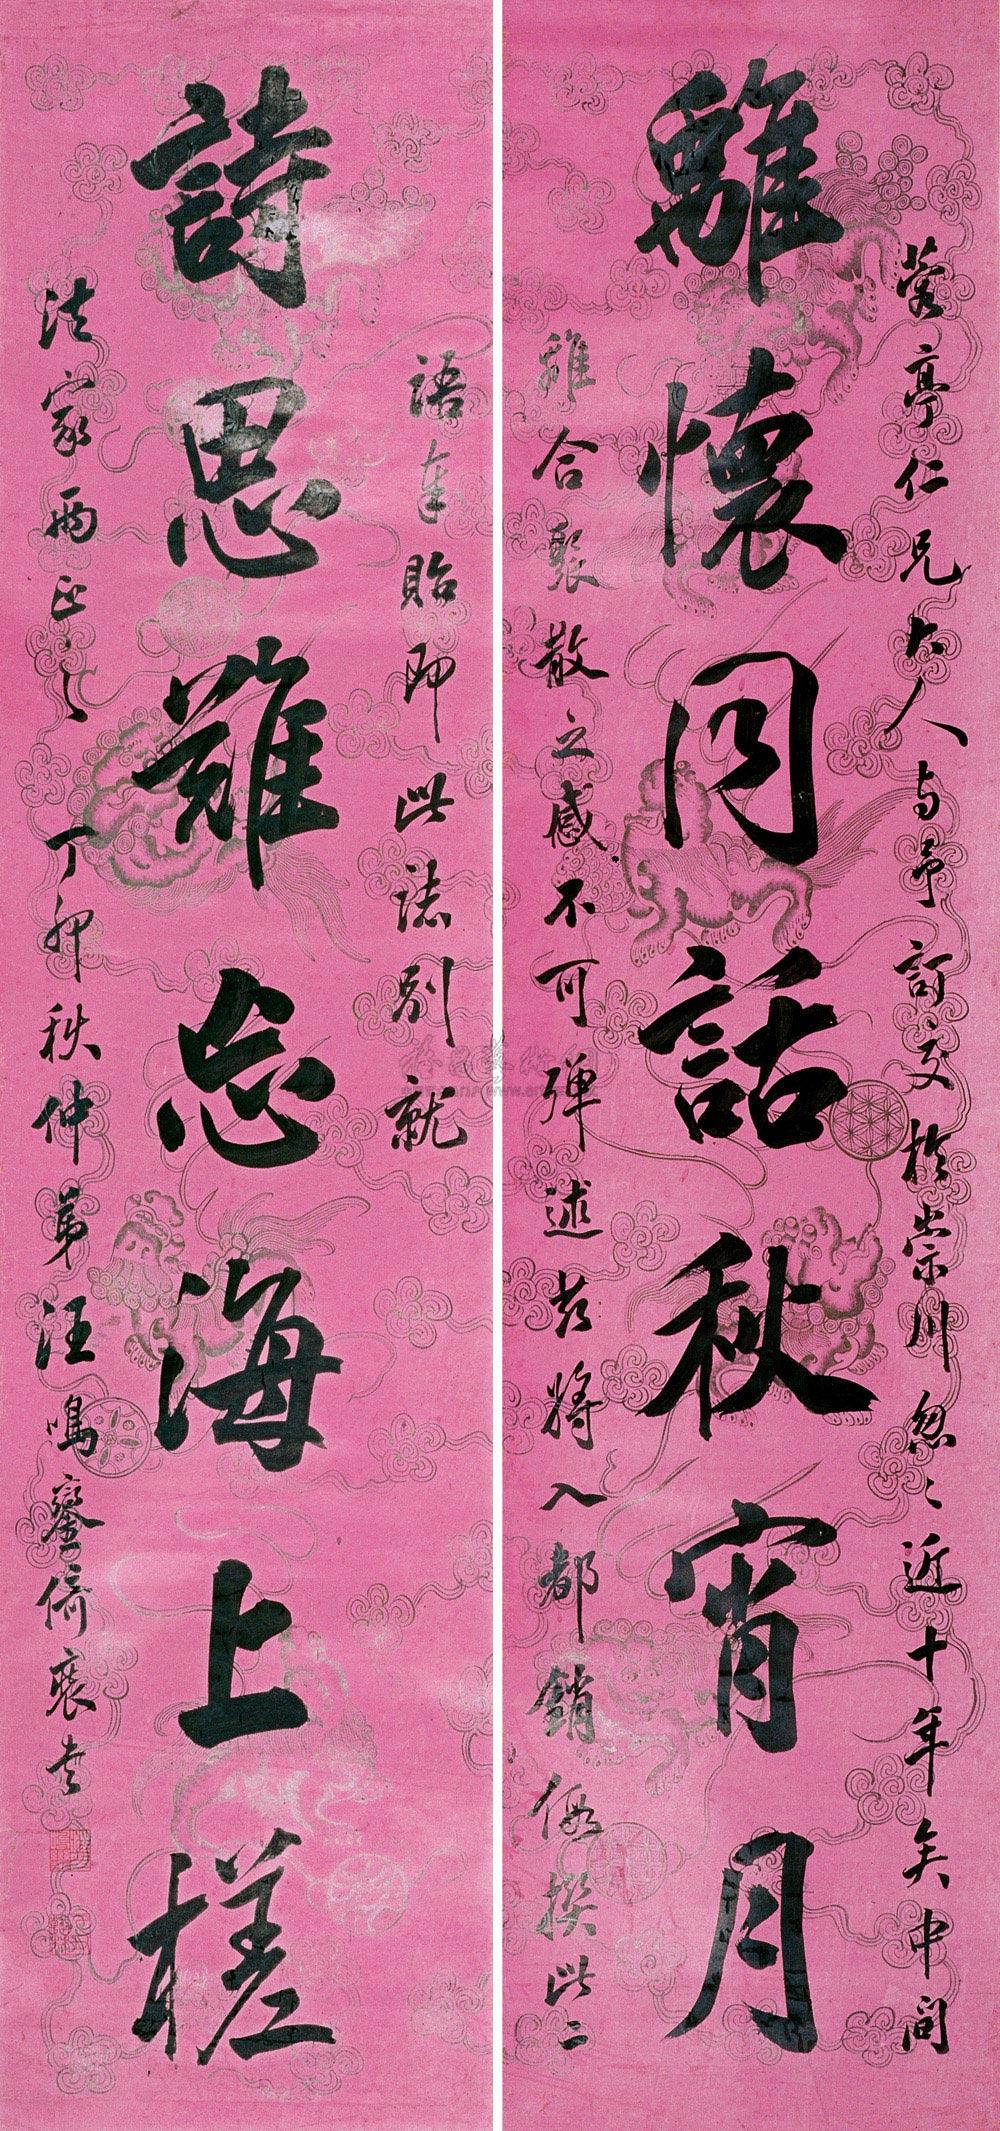 離懷同話秋宵月
蓉亭仁兄大人与予訂交於崇川忽〻近十年矣中间
離合聚散之感不可殫述茲將入都銷假撰此二
詩思難忘海上槎
語奉貽即此誌別就
法家兩正之丁卯秋仲弟汪鳴鑾倚裝書